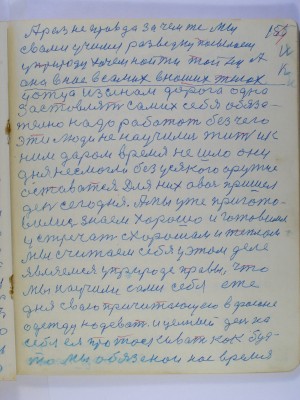 А раз не правда зачем же мы 155
свами учими разведку пививаем
у природу хочем пойти той
она в нас всамих в наших телах
и отца из сынам дорога одна
Заставлять самих себя обяза-
тельно надо работат без чего
эти люди не научилис жит их
ним даром время не шло они
дня несмогли без усякого оружие
оставатся Для них авот пришел
ден сегодня. А мы уже пригото-
вилис знаем хорошо и готовимся
устречат схорошим и теплом
мы считаем себя у этом деле
являемся у природе правы, что
мы научили сами себя еже
дня свою причитающею в фасоне
одежду надеват и целый ден на
себя ея про тоскиват как буд-
то мы обязаны нас время